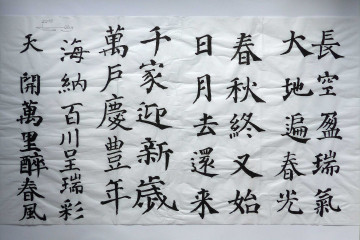 長空盈瑞氣
大地遍春光
春秋終又始
日月去還来
千家迎新歲
萬戶慶豊年
海納百川呈瑞彩
天開萬里醉春風